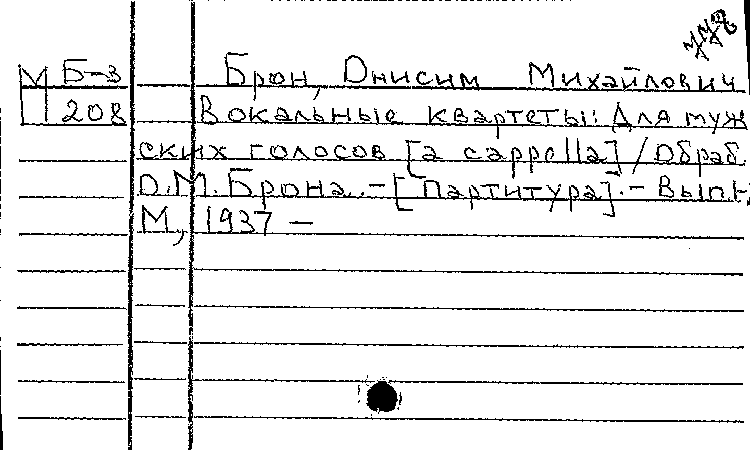 778
М Б-з Брон, Онисим Михайлович
П 208 Вокальные квартеты: Для муж
ских голосов [a cappella] / Обраб.
О.М. Брона. - [Партитура]. - Вып.
М., 1937 -